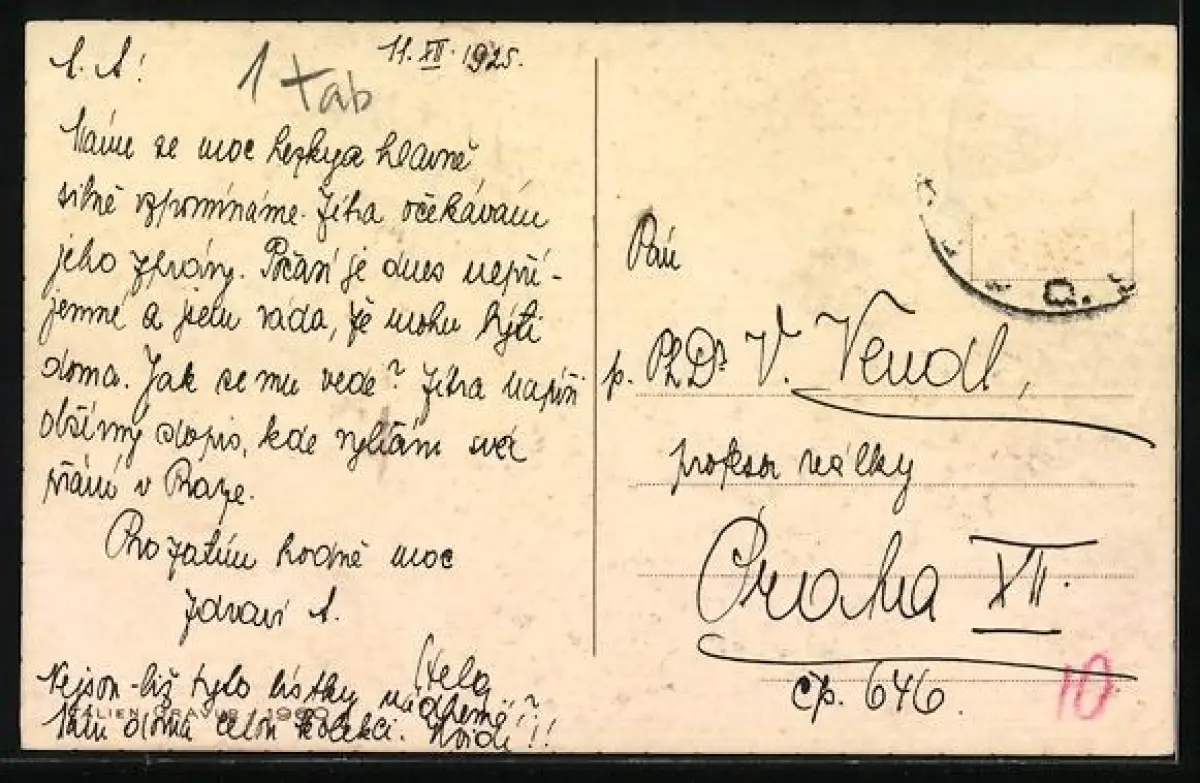 11. XII. 1925.
1 tab
Mám se moc hezky a hlavně
silně vzpomínáme. Zítra očekávám
jeho zprávy. Počasí je dnes nepří-
jemné a jsem ráda, že mohu býti
doma. Jak se mu vede? Zítra napíši
obšírný dopis, kde vylíčím své
přání v Praze.
Prozatím hodně moc
zdraví A.
Nejsou-liž tyto lístky nádherné?
Mám doma celou kolekci.
ITALIEN GRAVUR 1960
Pan
p. PhDr V. Vendl,
profesor reálky
Praha XII.
čp. 646.
10